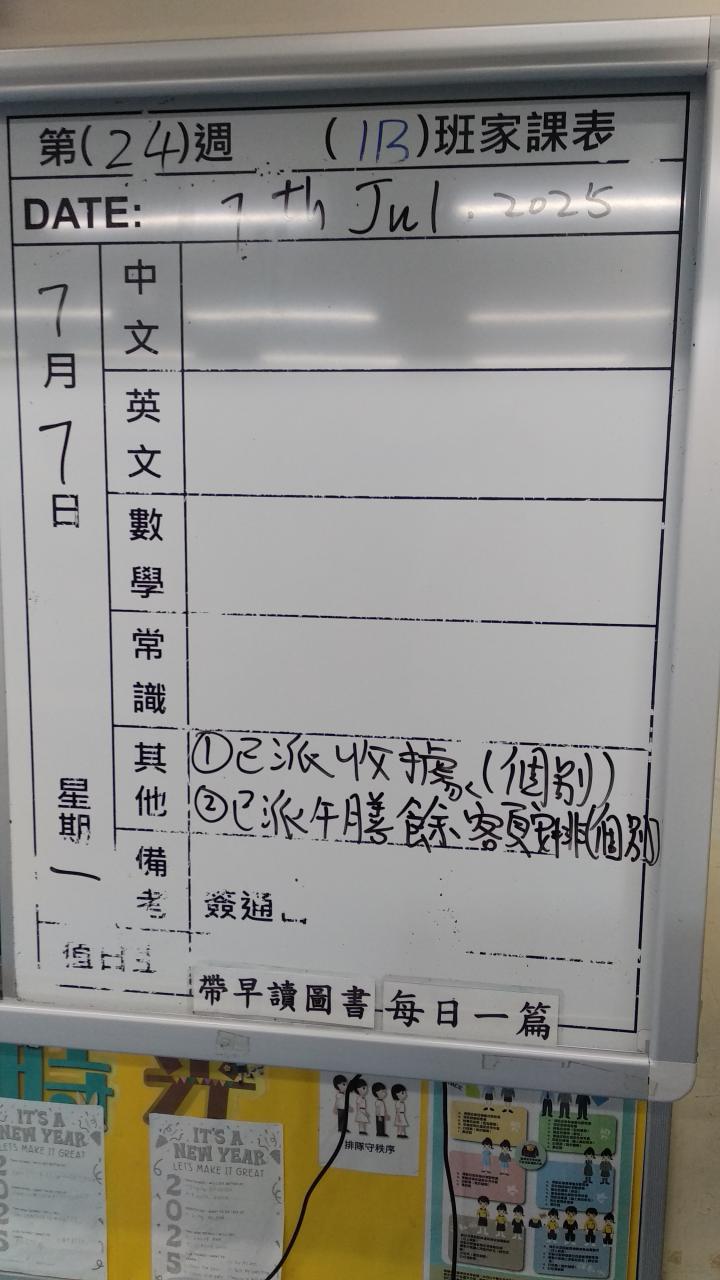 第(24)週 (1B)班家課表
DATE: 7th Jul. 2025
7月7日 星期一
中文
英文
數學
常識
其他
①已派收據(個別)
②已派午膳餘額安排(個別)
備考
簽通
值日生
帶早讀圖書 每日一篇
時光
IT'S A
NEW YEAR
LET'S MAKE IT GREAT
2025
IT'S A
NEW YEAR
LET'S MAKE IT GREAT
2025
排隊守秩序